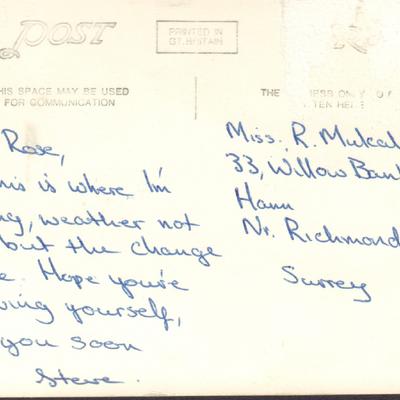 POST
PRINTED IN
GT. BRITAIN
HIS SPACE MAY BE USED
FOR COMMUNICATION
THE ESS ONLY
TEN HERE
Rose,
his is where I'm
ng, weather not
but the change
e. Hope you're
ving yourself,
you soon
Steve.
Miss. R. Mulcah
33, Willow Bank
Ham
Nr. Richmond
Surrey